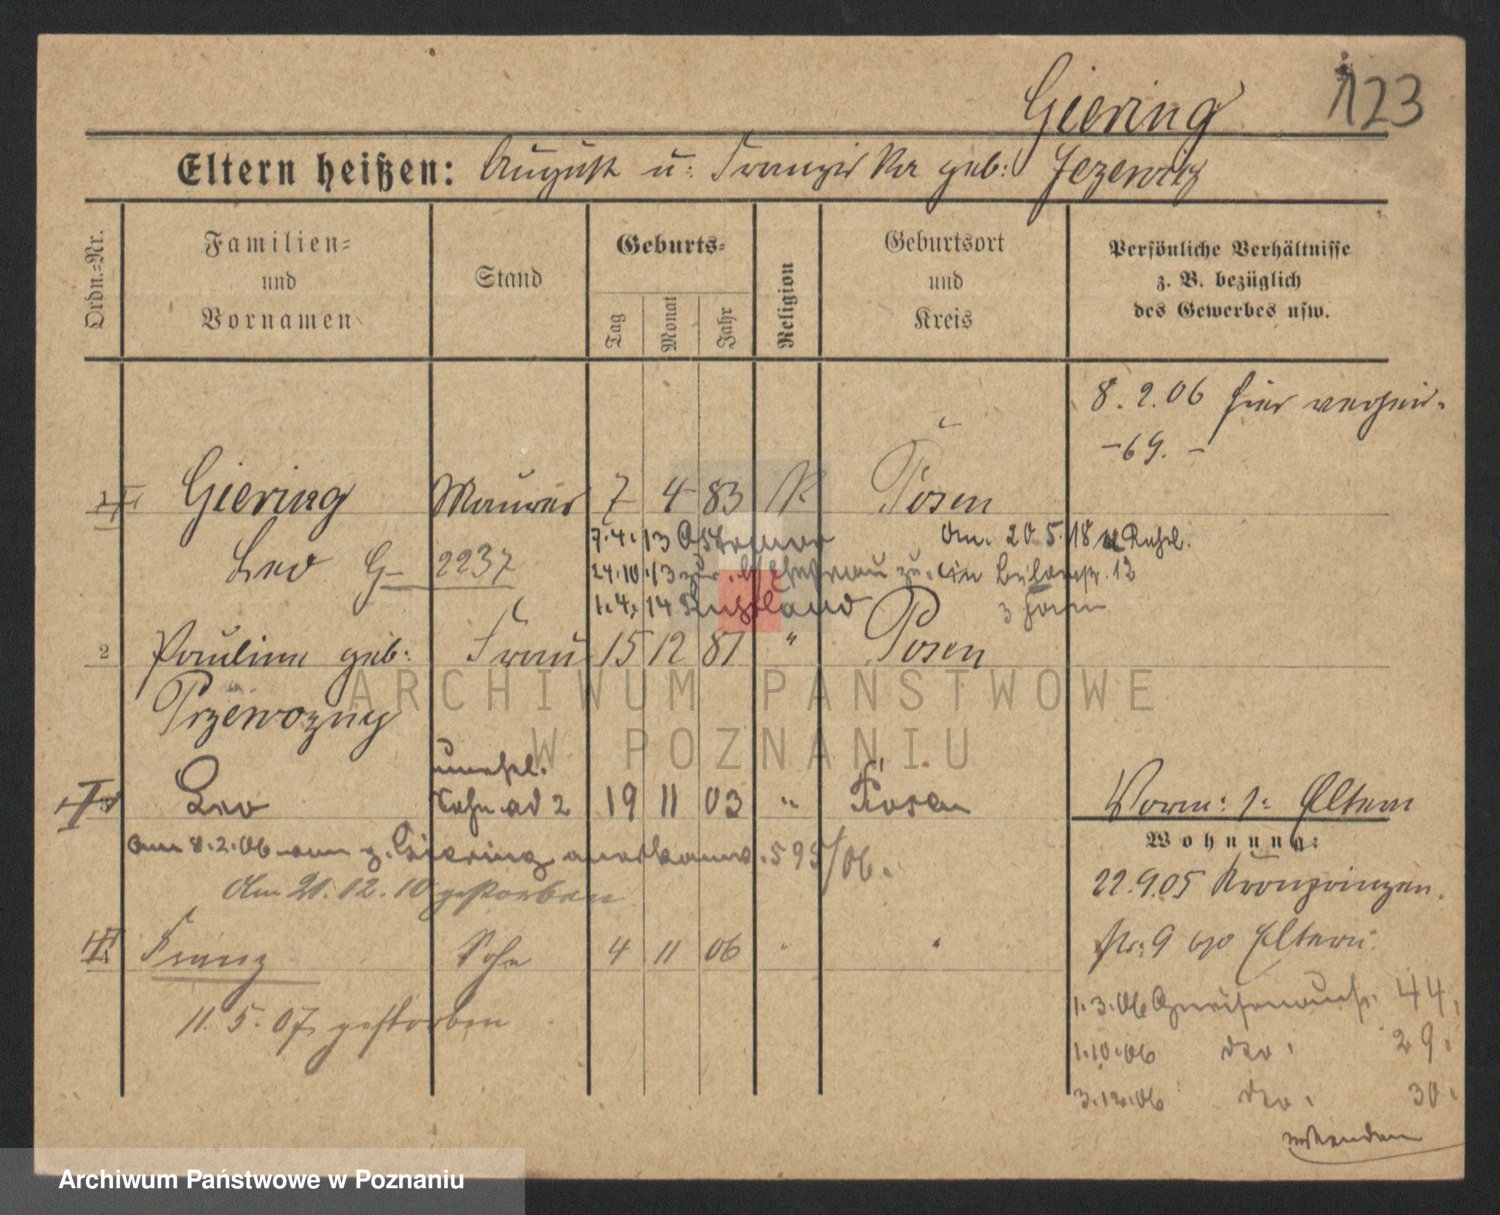 Giering 123
Eltern heißen: August u: Franziska geb: Jezewicz
Ordn.=Nr.
Familien=
und
Vornamen
Stand
Geburts=
Tag
Monat
Jahr
Religion
Geburtsort
und
Kreis
Persönliche Verhältnisse
z. B. bezüglich
des Gewerbes usw.
8.2.06 hier verheir.
-69.-
1 Giering Maurer 7 4 83 K Posen
Leo G- 2237
7.4.13 am. 20.5.18 Rußl.
24.10.13 zur. 12
1.4.14 Rußland
2 Pauline geb: Frau 15 12 81 " Posen
Przewozny
unehel.
Leo Sohn ad 2 19 11 03 " Posen
am 8.2.06 von z. Giering anerkannt. 595/06.
Am 21.12.10 gestorben
Franz Sohn 4 11 06 "
11.5.07 gestorben
Vorm: 1: Eltern
Wohnung:
22.9.05 Kronprinzen.
Nr: 9 bzo Eltern
1.3.06 Gneisenaustr. 44.
1.10.06 dto. 29.
3.12.06 dto. 30.
wenden
ARCHIWUM PAŃSTWOWE
W POZNANIU
Archiwum Państwowe w Poznaniu